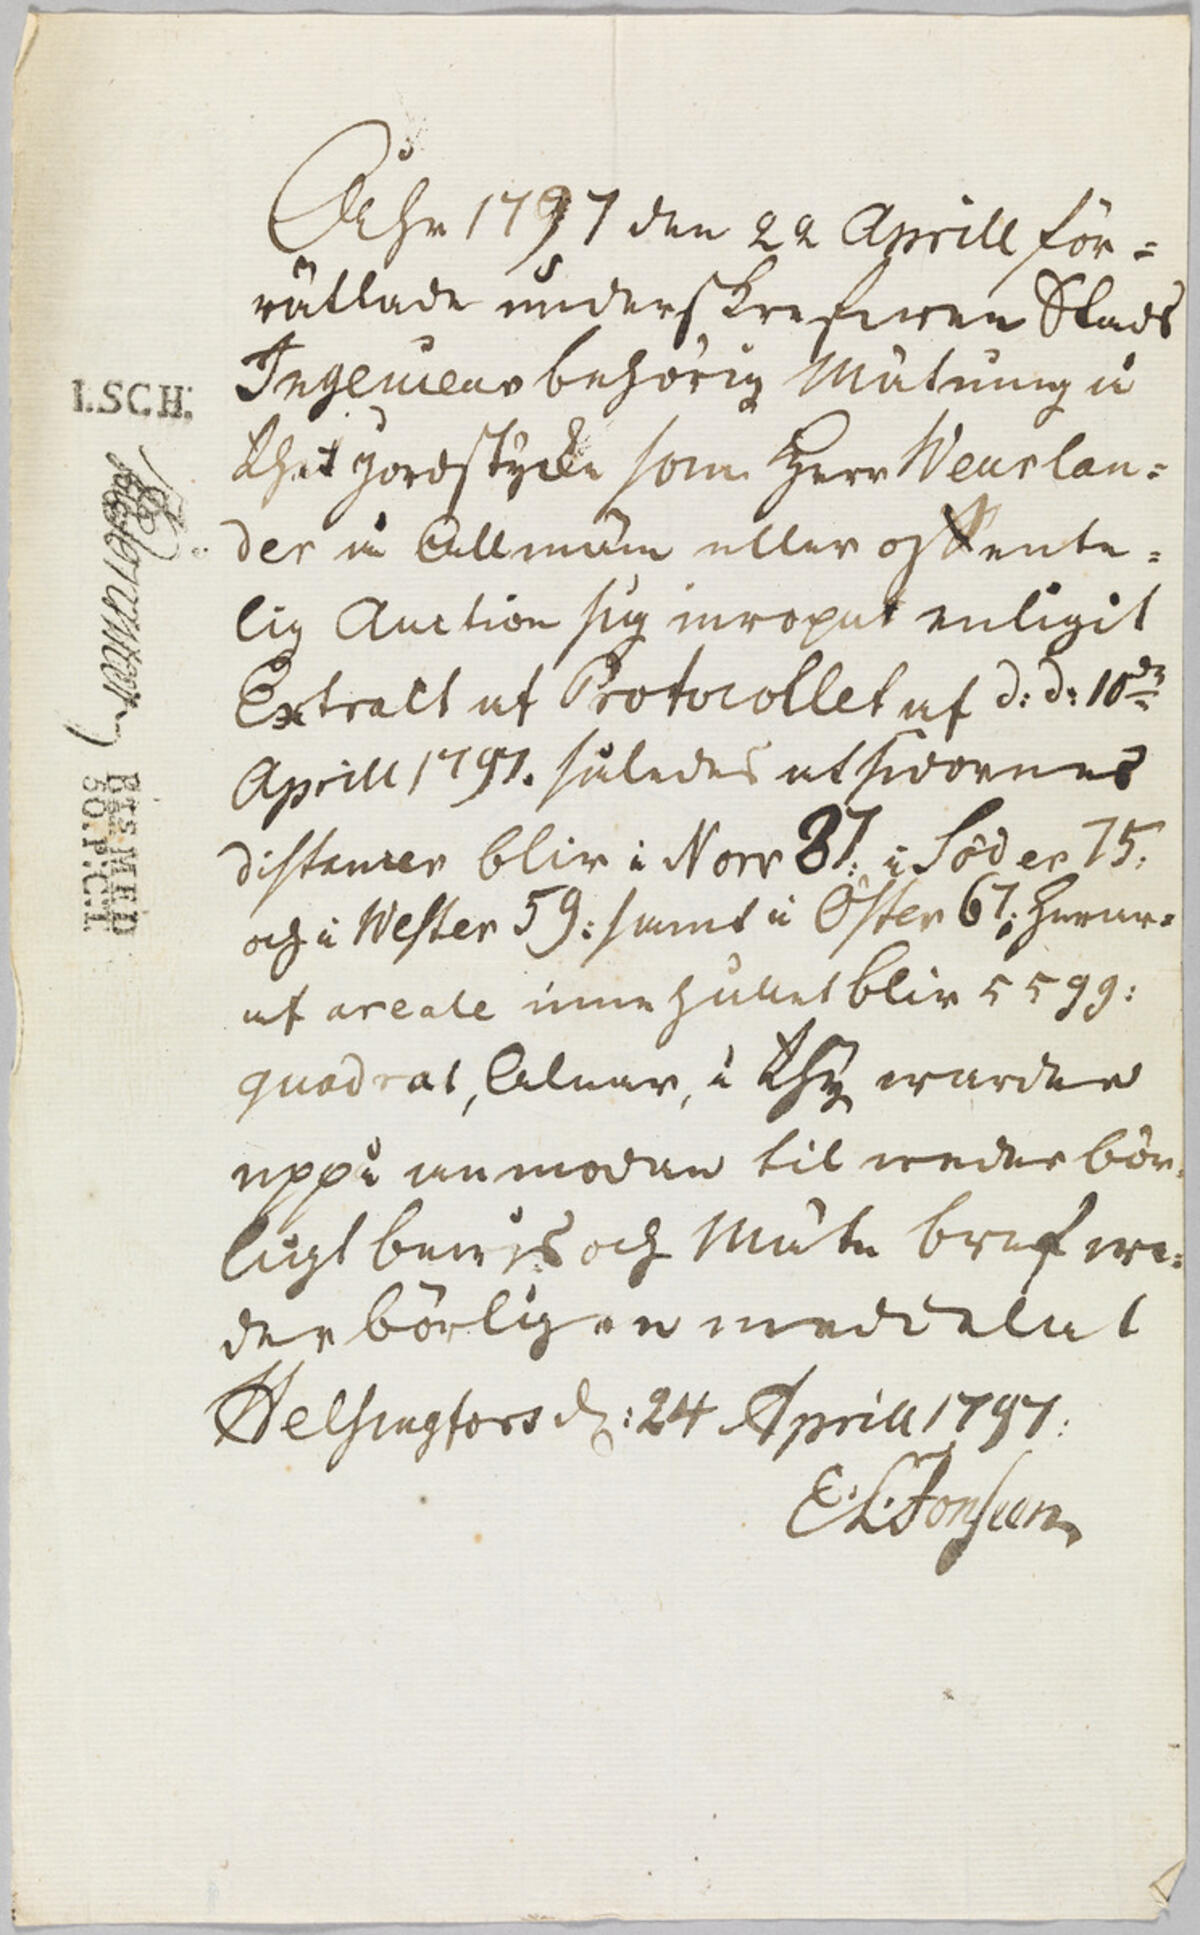 Åhr 1797 den 22 Aprill för=
rättade underskrefwen Stads
Ingenieur behörig Mätning å
I.SCH:
thet jordstycke som Herr Wenlan=
der å Allmän eller offente=
lig Auction sig inropat enligit
Extract af Protocollet af d: d: 10de
Aprill 1797. således at sidornes
distancer blir i Norr 87: i Söder 75:
och i Wester 59: samt i Öster 67: hwar=
af areale innehållet blir 5599:
quadrat, Alnar, i thy warder
uppå anmodan til wederbör=
ligt bewis och Mäte bref we=
derbörligen meddelat
Helsingfors d: 24 Aprill 1797:
E. L. Jonsson